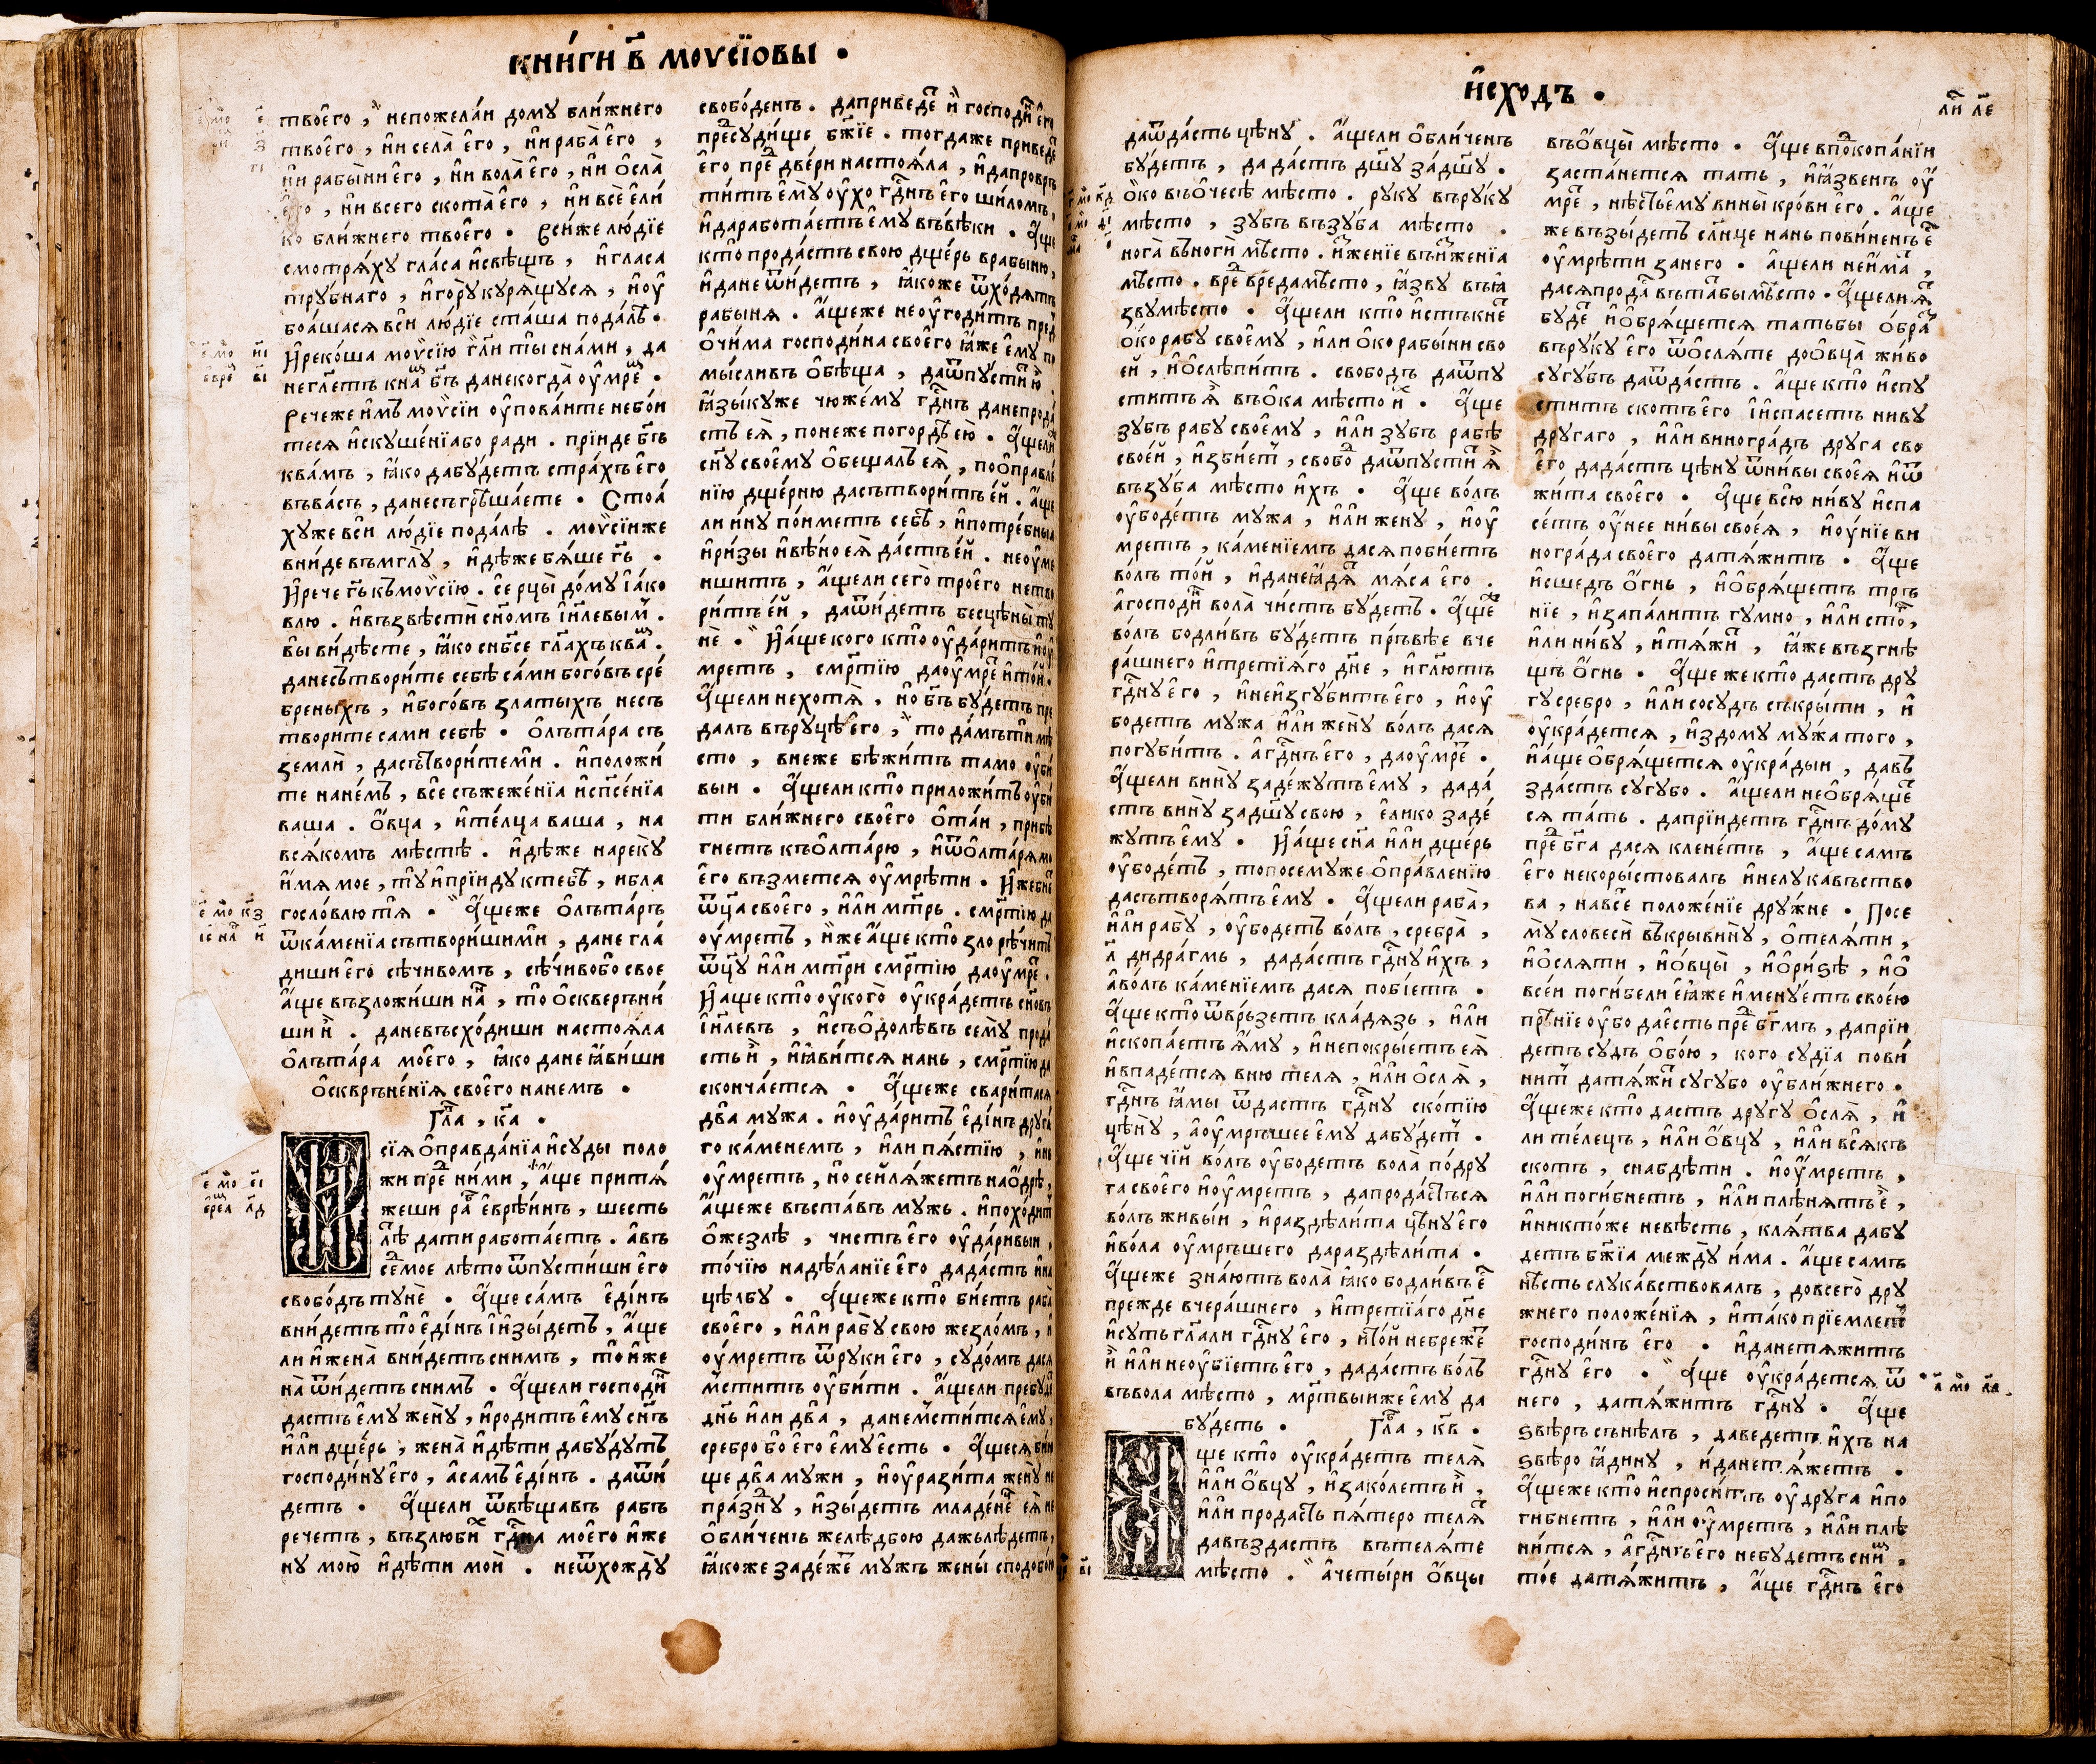 книги в҃ моѵсїовы •
твоего , непожелаи дому ближнего
твоего , ни села его , ни раба его ,
ни рабыни его , ни вола его , ни осла
его , ни всего скота его , ни все ели
ко ближнего твоего • Сииже людїе
смотряху гласа исвѣщъ , игласа
трубнаго , игору курящуся , ноу
боашася вси людїе сташа подалѣ •
Ирекоша моѵсїю гл҃и ты снами , да
негл҃етъ кна бг҃ъ данекогда оумре •
Речеже имъ моѵсїи оуповаите небои
теся искушенїабо ради . прїиде бг҃ъ
квамъ , ꙗко дабудетъ страхъ его
въвасъ , данесъгрѣшаете • Стоа
хуже вси людїе подалѣ . моѵсїиже
вниде въмглу , идѣже бяше гь҃ •
Ирече гь҃ къмоѵсїю . се рцы дому їако
влю . ивъзвѣсти сн҃омъ їил҃евым .
вы видѣсте , ꙗко снб҃се гл҃ахъ ква .
данесътворите себѣ сами боговъ сре
бреныхъ , ибоговъ златыхъ несъ
творите сами себѣ • Олътара съ
земли , дасътворитеми . иположи
те нанемъ , все съжеженїа испс҃енїа
ваша . Овца , ителца ваша , на
всякомъ мѣстѣ . идѣже нареку
имя мое , ту иприиду ктебѣ , ибла
гословлю тя • Аще же олътаръ
ѿкаменїа сътворишими , дане гла
диши его сѣчивомъ , сѣчивобо свое
аще възложиши на , то оскверъни
ши и . даневъсходиши настояла
олътара моего , ꙗко дане ꙗвиши
оскврънения своего нанемъ •
Гла , ка •
И
сїя оправданїа исуды поло
жи пре ними , аще притя
жеши ра еврѣинъ , шесть
лѣ дати работаетъ . авъ
семое лѣто ѿпустиши его
свободъ туне • Аще самъ единъ
внидетъ то единъ иизыдетъ , аще
ли ижена внидетъ снимъ , то иже
на ѿидетъ снимъ • Ащели господи
дасть ему жену , иродитъ ему сн҃ъ
или дщерь , жена идѣти дабудутъ
господину его , асамъ единъ . даѿи
детъ • Ащели ѿвѣщавъ рабъ
речетъ , възлюби гд҃на моего иже
ну мою идѣти мои . неѿхожду
свободенъ . даприведе и господи его
пресудище бж҃їе . тогдаже приведе
его пре двери настояла , идапровръ
титъ ему оухо гд҃нъ его шиломъ ,
идаработаетъ ему въвѣки • Аще
кто продастъ свою дщерь врабыню ,
идане ѿидетъ , ꙗкоже ѿходятъ
рабыня . Ащеже неоугодитъ пред
очима господина своего ꙗже ему по
мысливъ обѣща , даѿпустию .
ꙗзыкуже чюжему гд҃нъ данепрода
стъ ея , понеже погордѣ ею • Ащели
сн҃у своему обещалъ ея , пооправле
нїю дщерню дасътворитъ ей . аще
ли ину поиметъ себѣ , ипотребныа
иризы ивѣно ея дастъ ей . неоуме
ншитъ , ащели сего троего нетво
ритъ ей , даѿидетъ бесцѣны ту
не . Иаще кого кто оударитъ иоу
мретъ , смр҃тїю даоумре итои .
Ащели нехотя . но бг҃ъ будетъ пре
далъ въруцѣ его , то дамъти мѣ
сто , внеже бѣжитъ тамо оуби
выи • Ащели кто приложитъ оуби
ти ближнего своего отаи , прибѣ
гнетъ къолтарю , иѿолтаря мо
его възмется оумрѣти • Ижебие
ѿц҃а своего , или мт҃рь . смр҃тїю да
оумретъ , иже аще кто зло рѣчитъ
ѿц҃у или мт҃ри смр҃тїю даоумре .
Иаще кто оукого оукрадетъ сн҃овъ
їил҃евъ , исъодолѣвъ сему прода
сть и , иꙗвится нань , смр҃тїю да
скончается • Ащеже сварится
два мужа . иоударитъ единъ друга
го каменемъ , или пястїю , ине
оумретъ , но сейляжетъ наодрѣ ,
Ащеже въставъ мужъ . ипоходит
ожезлѣ , чистъ его оударивыи ,
точїю надѣланїе его дадастъ ина
цѣлбу • Ащеже кто биетъ раба
своего , или рабу свою жезломъ , и
оумретъ ѿруки его , судомъ дася
мститъ оубити . Ащели пребуде
дн҃ь или два , данемстится ему ,
сребро бо его емуесть • Ащеся бии
ще два мужи , иоуразита жену не
празну , изыдетъ младене ея не
обличенъ желѣдбою дажьлѣдетъ ,
ꙗкоже задеже мужъ жены сподобои
исходъ •
ли ле
даѿдасть цѣну . Ащели обличенъ
будетъ , да дастъ дш҃у задш҃у .
Око въочесѣ мѣсто . руку въруку
мѣсто , зубъ възуба мѣсто .
нога въноги мѣсто . иженїе въиженїа
мѣсто . вре вредамѣсто , ꙗзву въꙗ
звумѣсто • Ащели кто истъкне
око рабу своему , или око рабыни сво
ей , иослѣпитъ . свободъ даѿпу
ститъ я въока мѣсто и . Аще
зубъ рабу своему , или зубъ рабѣ
своей , избиет , свобо даѿпусти я
възуба мѣсто ихъ • Аще волъ
оубодетъ мужа , или жену , иоу
мретъ , каменїемъ дася побиетъ
волъ той , иданеꙗдя мяса его .
агосподи вола чистъ будетъ . Аще
волъ бодливъ будетъ пръвѣе вче
рашнего итретїяго дн҃е , игл҃ютъ
гд҃ну его , инеизгубитъ его , иоу
бодетъ мужа или жену волъ дася
погубитъ . агд҃нъ его , даоумре .
Ащели вину задежутъ ему , дада
стъ вину задш҃у свою , елико заде
жутъ ему • Иаще сн҃а или дщерь
оубодетъ , топосемуже оправленїю
дасътворятъ ему • Ащели раба ,
или рабу , оубодетъ волъ , сребра ,
л҃ дидрагмъ , дадастъ гд҃ну ихъ ,
аволъ каменїемъ дася побїетъ .
Аще кто ѿврьзетъ кладязь , или
ископаетъ яму , инепокрыетъ ея
ивпадется вню теля , или осля ,
гд҃нъ ꙗмы ѿдастъ гд҃ну скотїю
цѣну , аоумръшее ему дабудет .
Аще чїй волъ оубодетъ вола подру
га своего иоумретъ , дапродастъся
волъ живыи , ираздѣлита цѣну его
ивола оумръшего дараздѣлита .
Ащеже знаютъ вола ꙗко бодливъ е
прежде вчерашнего , итретїаго дн҃е
исуть гл҃али гд҃ну его , итой небреже
и или неоубїетъ его , дадастъ волъ
въвола мѣсто , мр҃твыиже ему да
будеть • Гла , кв •
А
ще кто оукрадетъ теля
или овцу , изаколетъ и ,
или продастъ пятеро теля
давъздастъ вътеляте
мѣсто . ачетыри овцы
въовцы мѣсто • Аще впокопанїи
застанется тать , иꙗзвенъ оу
мре , нѣстъему вины крови его . аще
же възыдетъ слн҃це нань повиненъ е
оумрѣти занего . ащели неима ,
дасяпрода вътатбы мѣсто . Ащели я
буде иобрящется татьбы обра
въруку его ѿосляте доовца живо
сугубъ даѿдастъ . аще кто испу
ститъ скотъ его їиспасетъ ниву
другаго , или виноградъ друга сво
его дадастъ цѣну ѿнивы своея иѿ
жита своего • Аще всю ниву испа
сетъ оунее нивы своея , иоунїе ви
нограда своего датяжитъ • Аще
исшедъ огнь , иобрящетъ трѣ
нїе , изапалитъ гумно , или сто ,
или ниву , итяжи , ꙗже възгнѣ
щъ огнь • Аще же кто дастъ дру
гу сребро , или сосудъ съкрыти , и
оукрадется , издому мужа того ,
иаще обрящется оукрадыи , давъ
здастъ сугубо . Ащели необряще
ся тать . даприидетъ гд҃нъ дому
пре бг҃а дася кленетъ , аще самъ
его некорыстовалъ инелукавъство
ва , навсе положенїе дружне . Посе
му словеси въкрывину , отеляти ,
иосляти , иовцы , иоризѣ , ио
всеи погибели еꙗже именуетъ своею
прѣнїе оубо даестъ пре бг҃мъ , дапрїи
детъ судъ обою , кого судїа пови
нит датяжи сугубо оуближнего .
Ащеже кто дастъ другу осля , и
ли телецъ , или овцу , или всякъ
скотъ , снабдѣти . иоумретъ ,
или погибнетъ , или плѣнятъ е ,
иниктоже невѣсть , клятва дабу
детъ бж҃їа между има . аще самъ
нѣсть слукавствовалъ , довсего дру
жнего положенїя , итако прїемлет
господинъ его . иданетяжитъ
гд҃ну его • Аще оукрадется ѿ
него , датяжитъ гд҃ну • Аще
ѕвѣръ сънѣлъ , даведетъ ихъ на
ѕвѣро ꙗдину , иданетяжетъ .
Ащеже кто испроситъ оудруга ипо
гибнетъ , или оумретъ , или плѣ
нится , агд҃нъ его небудетъ сни .
тое датяжитъ , аще гд҃нъ его